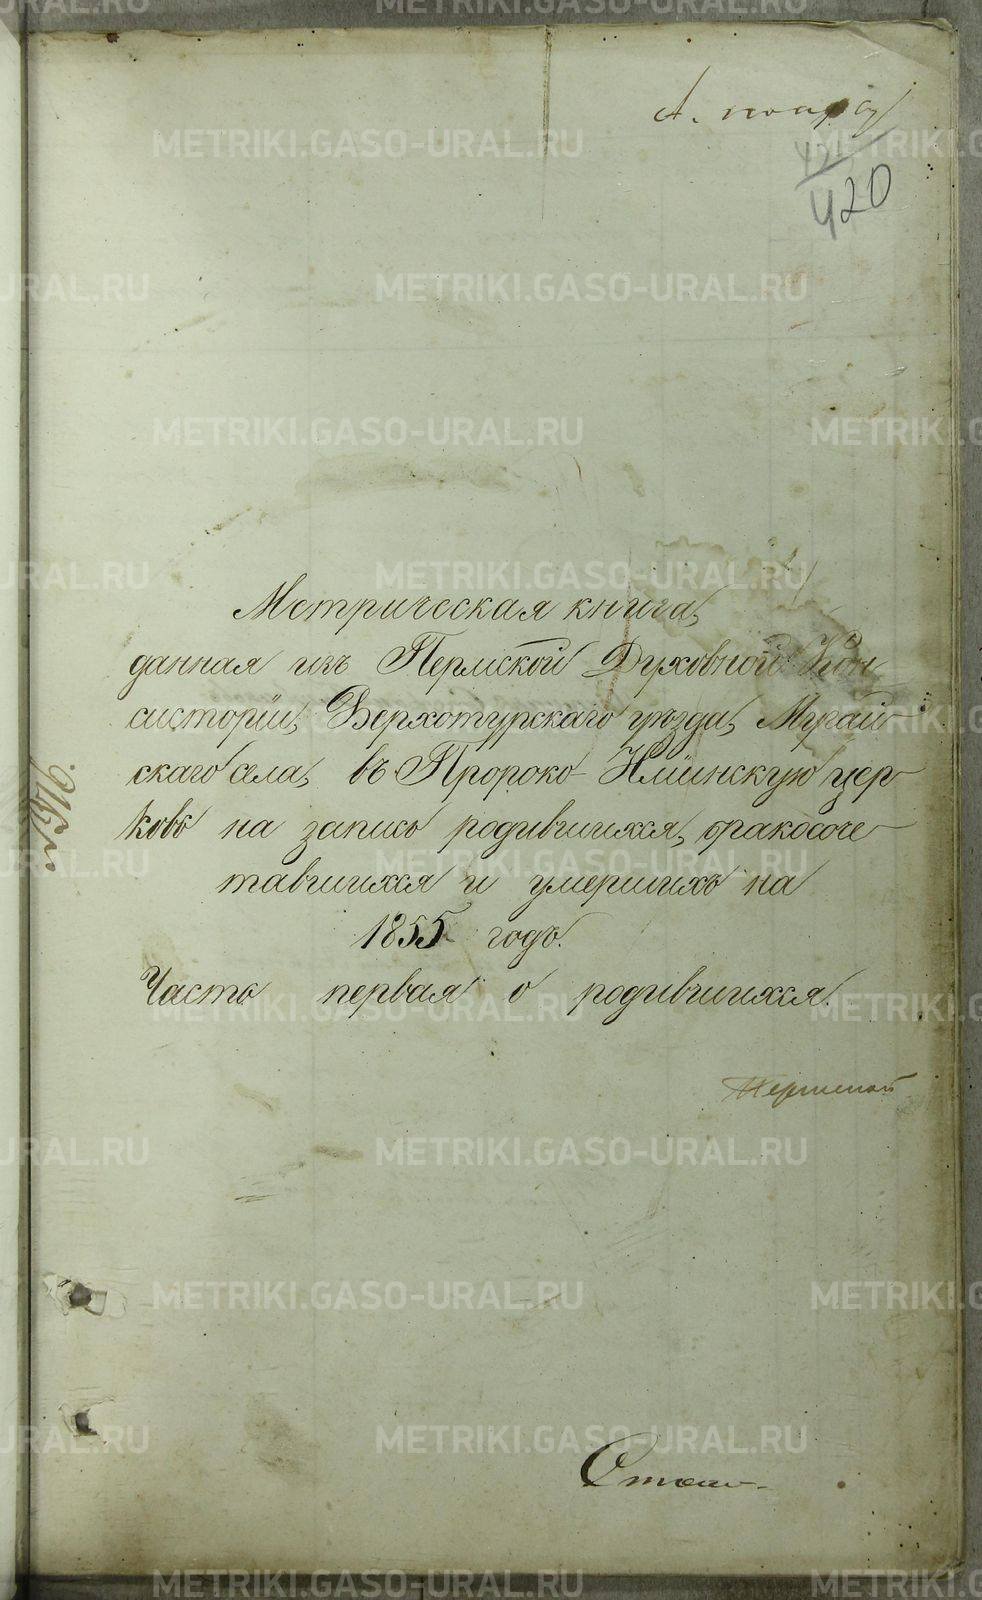 420
Метрическая книга,
данная изъ Пермской Духовной Кон
систоріи, Верхотурскаго уѣзда, Мугай
скаго села, въ Пророко-Ильинскую цер
ковь на запись родившихся, бракосоче
тавшихся и умершихъ на
1855 годъ.
Часть первая о родившихся.
METRIKI.GASO-URAL.RU